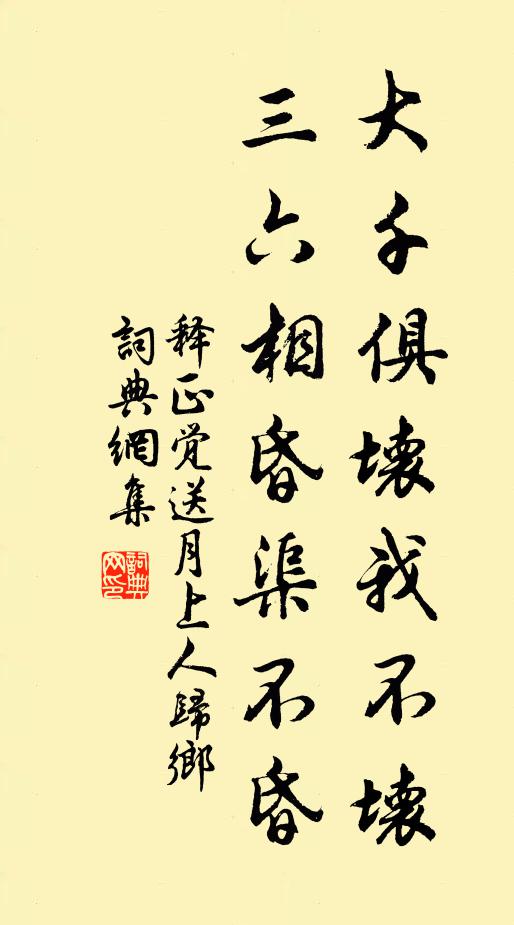 大千俱壞我不壞
三六相昏渠不昏
释正觉送月上人歸鄉
詞典網集
詞典網印